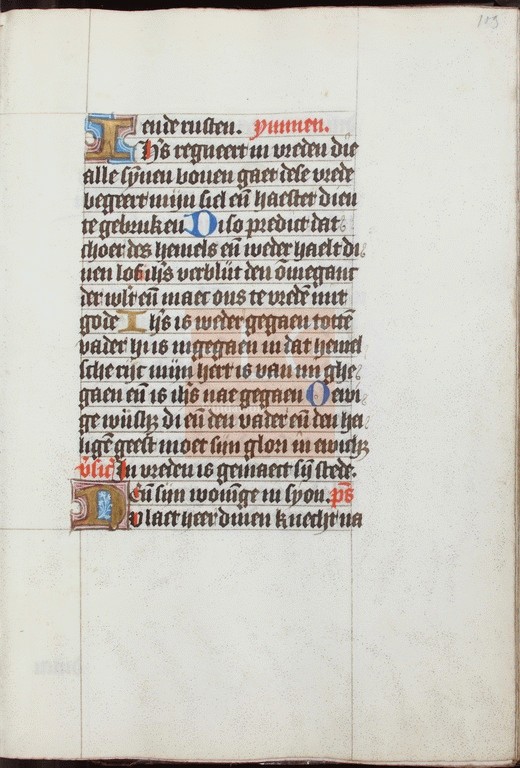 113
ende rusten. ymmen.
Ihs regneert in vreden die
alle synen bouen gaet dese vrede
begeert mijn siel en haester dien
te gebruken Diso predict dat
choer des hemels en weder haelt di
nen lof ihs verblijt den omeganc
der wlt en maec ons te vreden mit
gode Ihs is weder gegaen totten
vader hi is ingegaen in dat hemel
sche rijc mijn hert is van mi ghe
gaen en is ihs nae gegaen O ewi
ge wijsh die en den vader en den hei
ligen geest moet sijn glori in ewich
vsic In vreden is gemaect sij stede.
En sijn woninge in syon. ps
Nv laet heer dinen knecht na